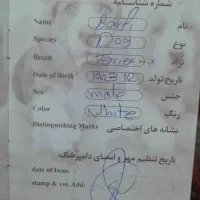 شماره شناسنامه
Name نام
Species Dog نوع
نژاد
Date of Birth تاریخ تولد
Sex male جنس
Color White رنگ
Distinguishing Marks نشانه های اختصاصی
تاریخ تنظیم مهر و امضای دامپزشک
date of Issue.
stamp & vet. Add: